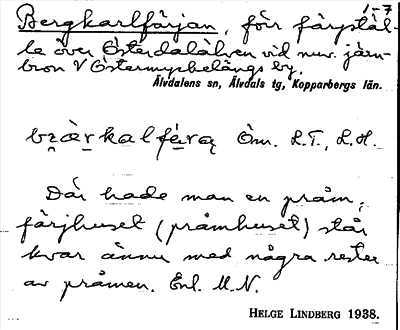 1-7
Bergkarlfärjan, förr färjstäl-
le över Österdalälven vid nuv. järn-
bron V Östermyckelängs by.
Älvdalens sn, Älvdals tg, Kopparbergs län.
Öm. L.T., L.H.
Där hade man en pråm,
färjhuset (pråmhuset) står
kvar ännu med några rester
av pråmen. Enl. M.N.
HELGE LINDBERG 1938.